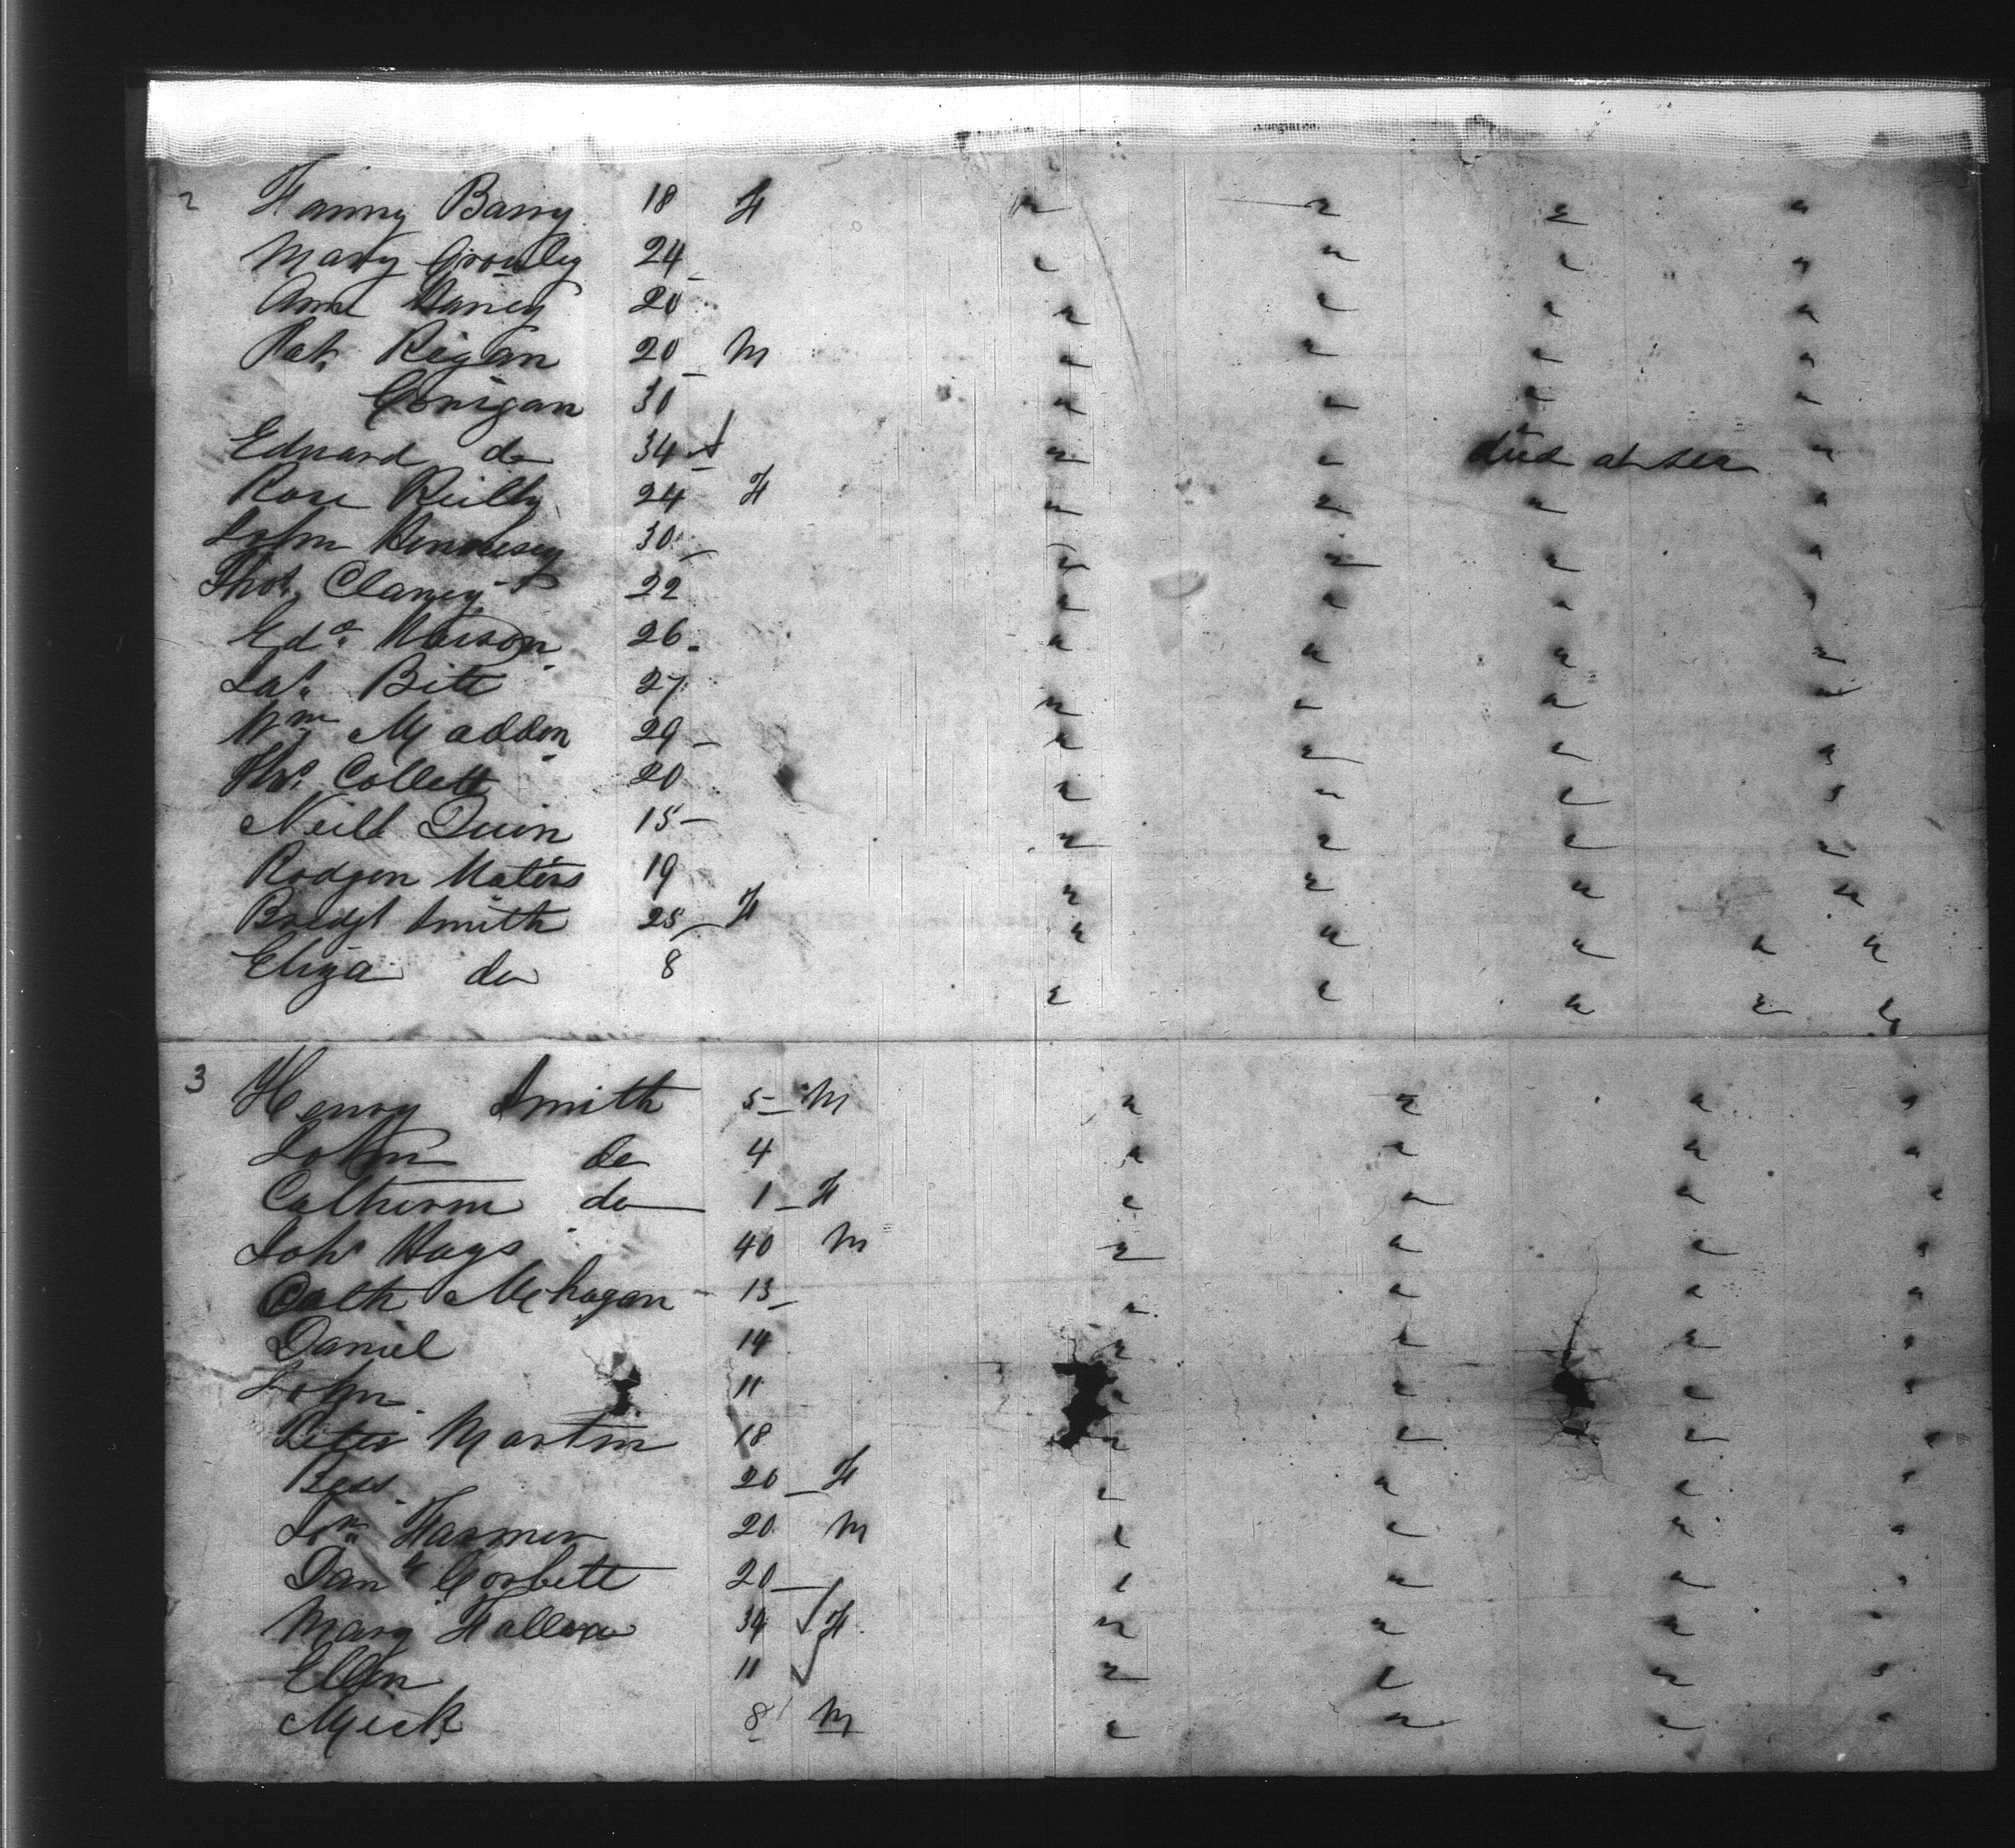 2 Fanny Barry 18 F " " " "
Mary Crouley 24 " " " "
Ann Haney 20 " " " "
Pat. Rigan 20 M " " " "
Corrigan 30 " " " "
Edward do 34 " " died at sea "
Rose Reilly 24 F " " " "
John Hennesey 30 " " " "
Thos. Clancy 22 " " " "
Edd. 26 " " " "
Jas. Bitt 27 " " " "
Wm Madden 29 " " " "
Thos. Collett 20 " " " "
Neill Quin 15 " " " "
Rodger Waters 19 " " " "
Bredgt Smith 25 F " " " " "
Eliza do 8 " " " " "
3 Henry Smith 5 M " " " "
John do 4 " " " "
Catherine do 1 F " " " "
Joh Hays 40 M " " " "
Cath McHagan 13 " " " "
Daniel 14 " " " "
John 11 " " " "
Peter Martin 18 " " " "
Bess 20 F " " " "
Jon. Farmer 20 M " " " "
Danl. Corbett 20 " " " "
Mary Fallon 34 F " " " "
Ellen 11 " " " "
Mick 8 M " " " "